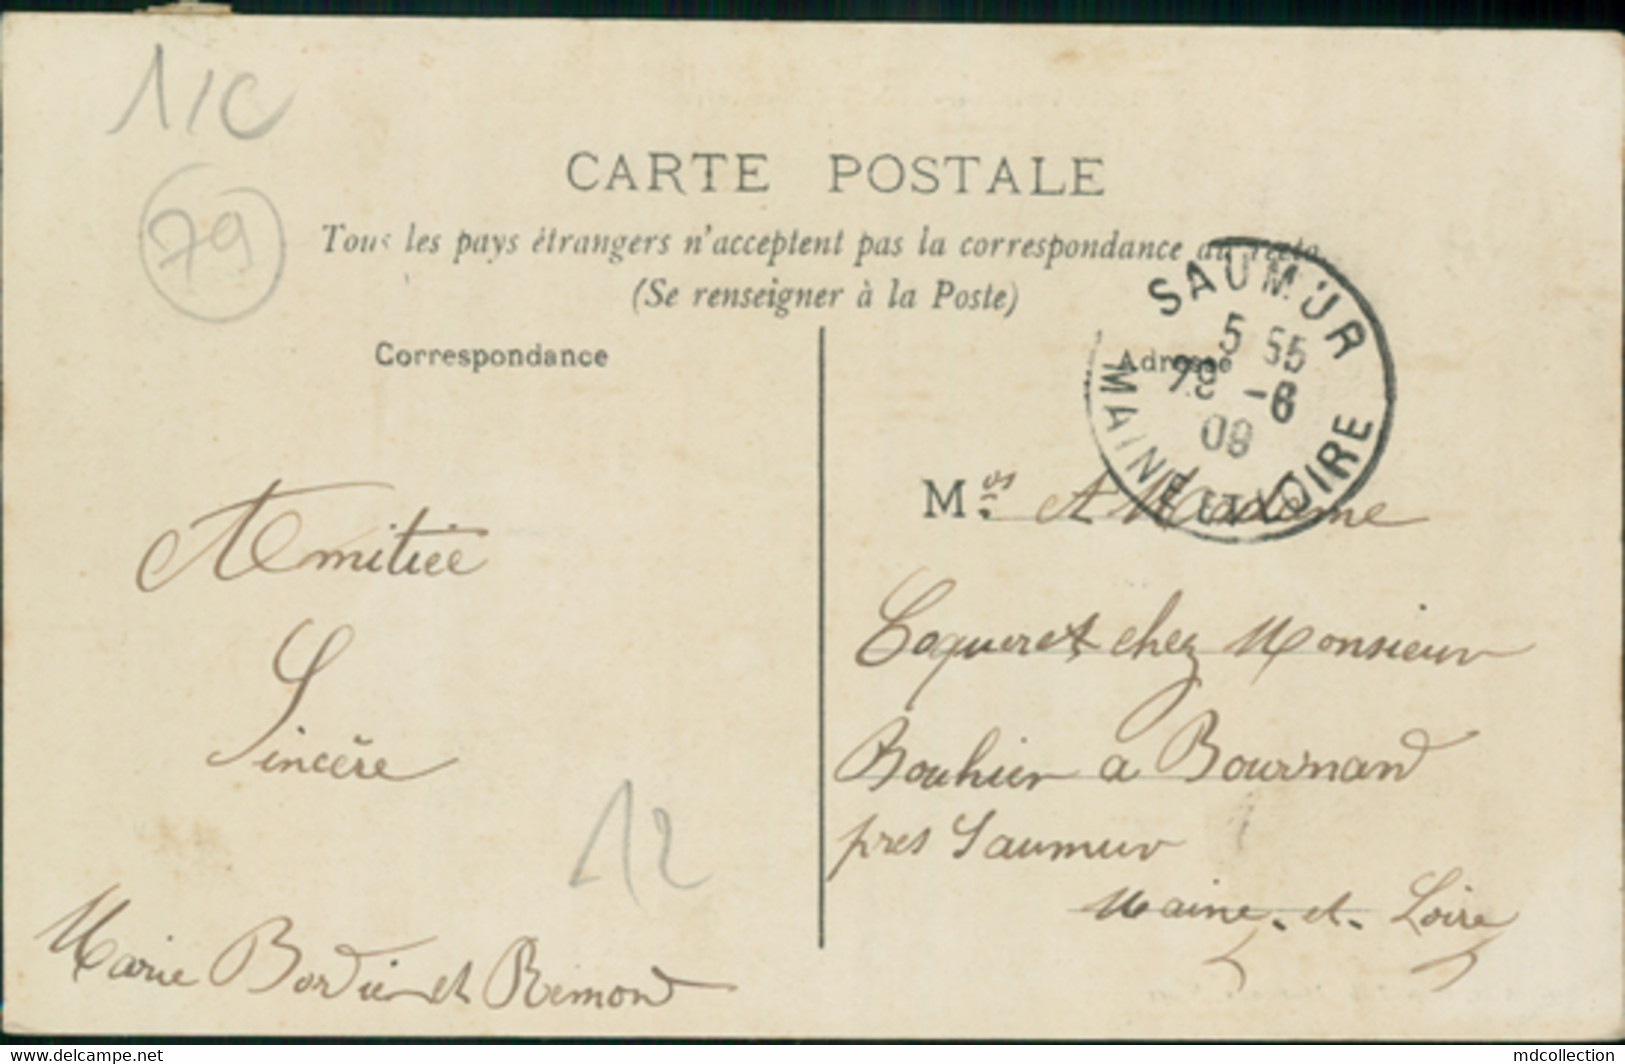 1/C
79
CARTE POSTALE
Tous les pays étrangers n'acceptent pas la correspondance au recto
(Se renseigner à la Poste)
Correspondance
Adresse
SAUMUR
MAINE ET LOIRE
5 55
-6
Amitiée
Sincère
12
Marie Bordie et Rémond
M
A Madame
Coqueret chez Monsieur
Bouhier a Bournand
pres Saumur
Maine-et-Loire
www.delcampe.net
mdcollection